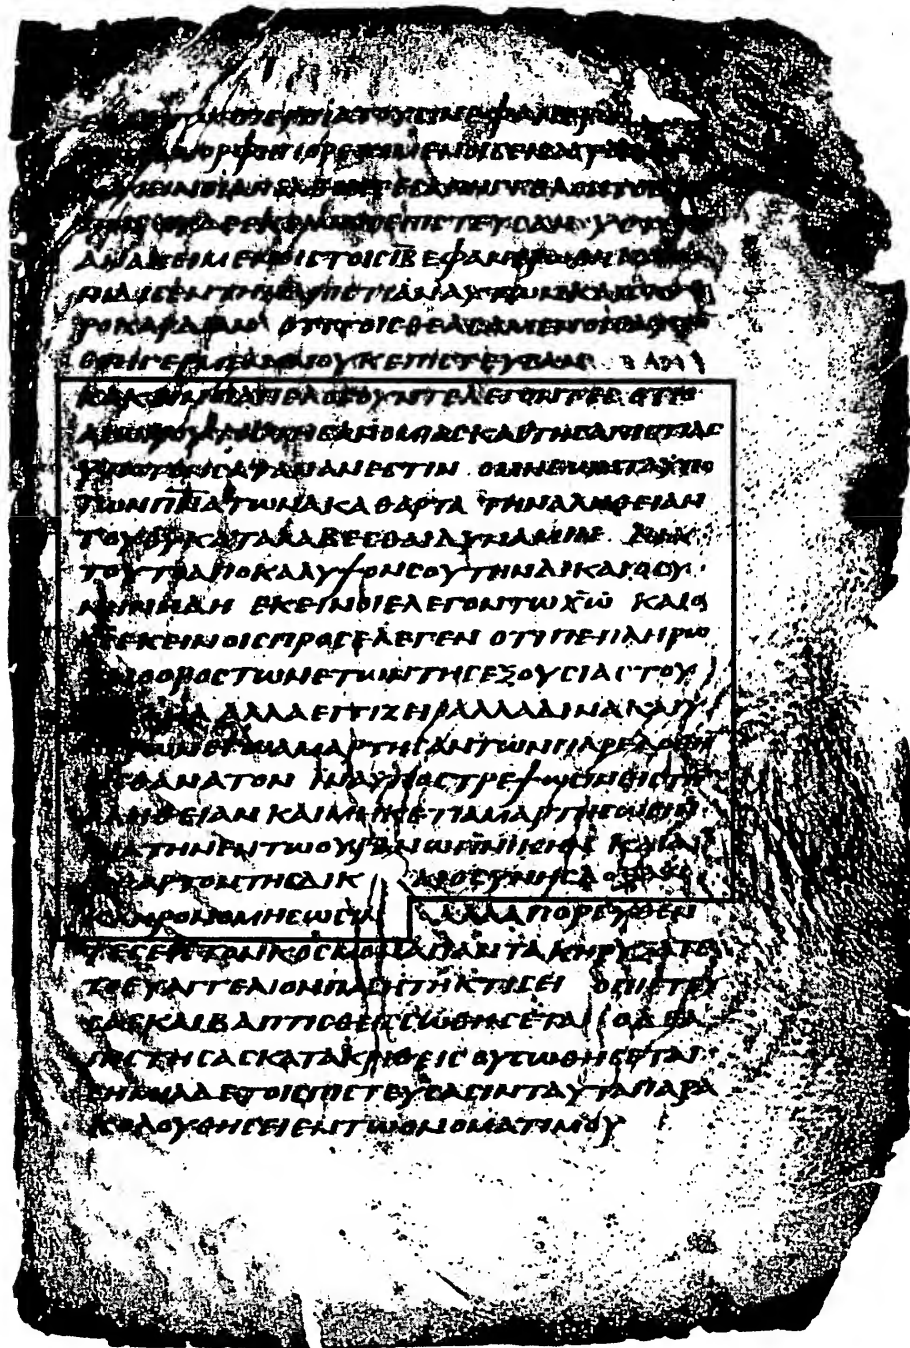 ΑΝΑΚΕΙΜΕΝΟΙCΤΟΙCΙΑΕΦΑΝΕΡΩΘΗ ΚΑΙΩΝΙ
ΔΙCΕΝΤΗΝΑΠΙCΤΙΑΝΑΥΤΩΝΚΑΙCΚΛΗ
ΡΟΚΑΡΔΙΑΝ ΟΤΙΤΟΙCΘΕΑCΑΜΕΝΟΙCΑΥΤΟΝ
ΕΓΗΓΕΡΜΕΝΟΝΟΥΚΕΠΙCΤΕΥCΑΝ
ΚΑΚΕΙΝΟΙΑΠΕΛΟΓΟΥΝΤΕΛΕΓΟΝΤΕC ΟΤΙΟ
ΑΙΩΝΟΥΤΟCΤΗCΑΝΟΜΙΑCΚΑΙΤΗCΑΠΙCΤΙΑC
ΥΠΟΤΟΝCΑΤΑΝΑΝΕCΤΙΝ ΟΜΗΕΩΝΤΑΥΠΟ
ΤΩΝΠΝΑΤΩΝΑΚΑΘΑΡΤΑ ΤΗΝΑΛΗΘΕΙΑΝ
ΤΟΥΘΥΚΑΤΑΛΑΒΕCΘΑΙΔΥΝΑΜΙΝ ΔΙΑ
ΤΟΥΤΟΑΠΟΚΑΛΥΨΟΝCΟΥΤΗΝΔΙΚΑΙΟCΥ
ΝΗΝΗΔΗ ΕΚΕΙΝΟΙΕΛΕΓΟΝΤΩΧΩ ΚΑΙΟ
ΧCΕΚΕΙΝΟΙCΠΡΟCΕΛΕΓΕΝ ΟΤΙΠΕΠΛΗΡΩ
ΤΑΙΟΟΡΟCΤΩΝΕΤΩΝΤΗCΕΞΟΥCΙΑCΤΟΥ
CΑΤΑΝΑ ΑΛΛΑΕΓΓΙΖΕΙ ΑΛΛΑΔΙΝΑΚΑΙΥ
ΠΕΡΩΝΕΓΩΑΜΑΡΤΗCΑΝΤΩΝΠΑΡΕΔΟΘΗ
ΕΙCΘΑΝΑΤΟΝ ΙΝΑΥΠΟCΤΡΕΨΩCΙΝΕΙCΤΗΝ
ΑΛΗΘΕΙΑΝ ΚΑΙΜΗΚΕΤΙΑΜΑΡΤΗCΩCΙΝ
ΙΝΑΤΗΝΕΝΤΩΟΥΡΑΝΩΠΝΙΚΗΝ ΚΑΙΑΦ
ΘΑΡΤΟΝΤΗCΔΙΚΑΙΟCΥΝΗCΔΟΞΑΝ
ΚΛΗΡΟΝΟΜΗCΩCΙΝ ΑΛΛΑΠΟΡΕΥΘΕΝ
ΤΕCΕΙCΤΟΝΚΟCΜΟΝΑΠΑΝΤΑΚΗΡΥΞΑΤΕ
ΤΟΕΥΑΓΓΕΛΙΟΝΠΑCΗΤΗΚΤΙCΕΙ ΟΠΙCΤΕΥ
CΑCΚΑΙΒΑΠΤΙCΘΕΙCCΩΘΗCΕΤΑΙ ΟΔΕΑ
ΠΙCΤΗCΑCΚΑΤΑΚΡΙΘΕΙC ΟΥCΩΘΗCΕΤΑΙ
CΗΜΙΑΔΕΤΟΙCΠΙCΤΕΥCΑCΙΝΤΑΥΤΑΠΑΡΑ
ΚΟΛΟΥΘΗCΕΙΕΝΤΩΟΝΟΜΑΤΙΜΟΥ